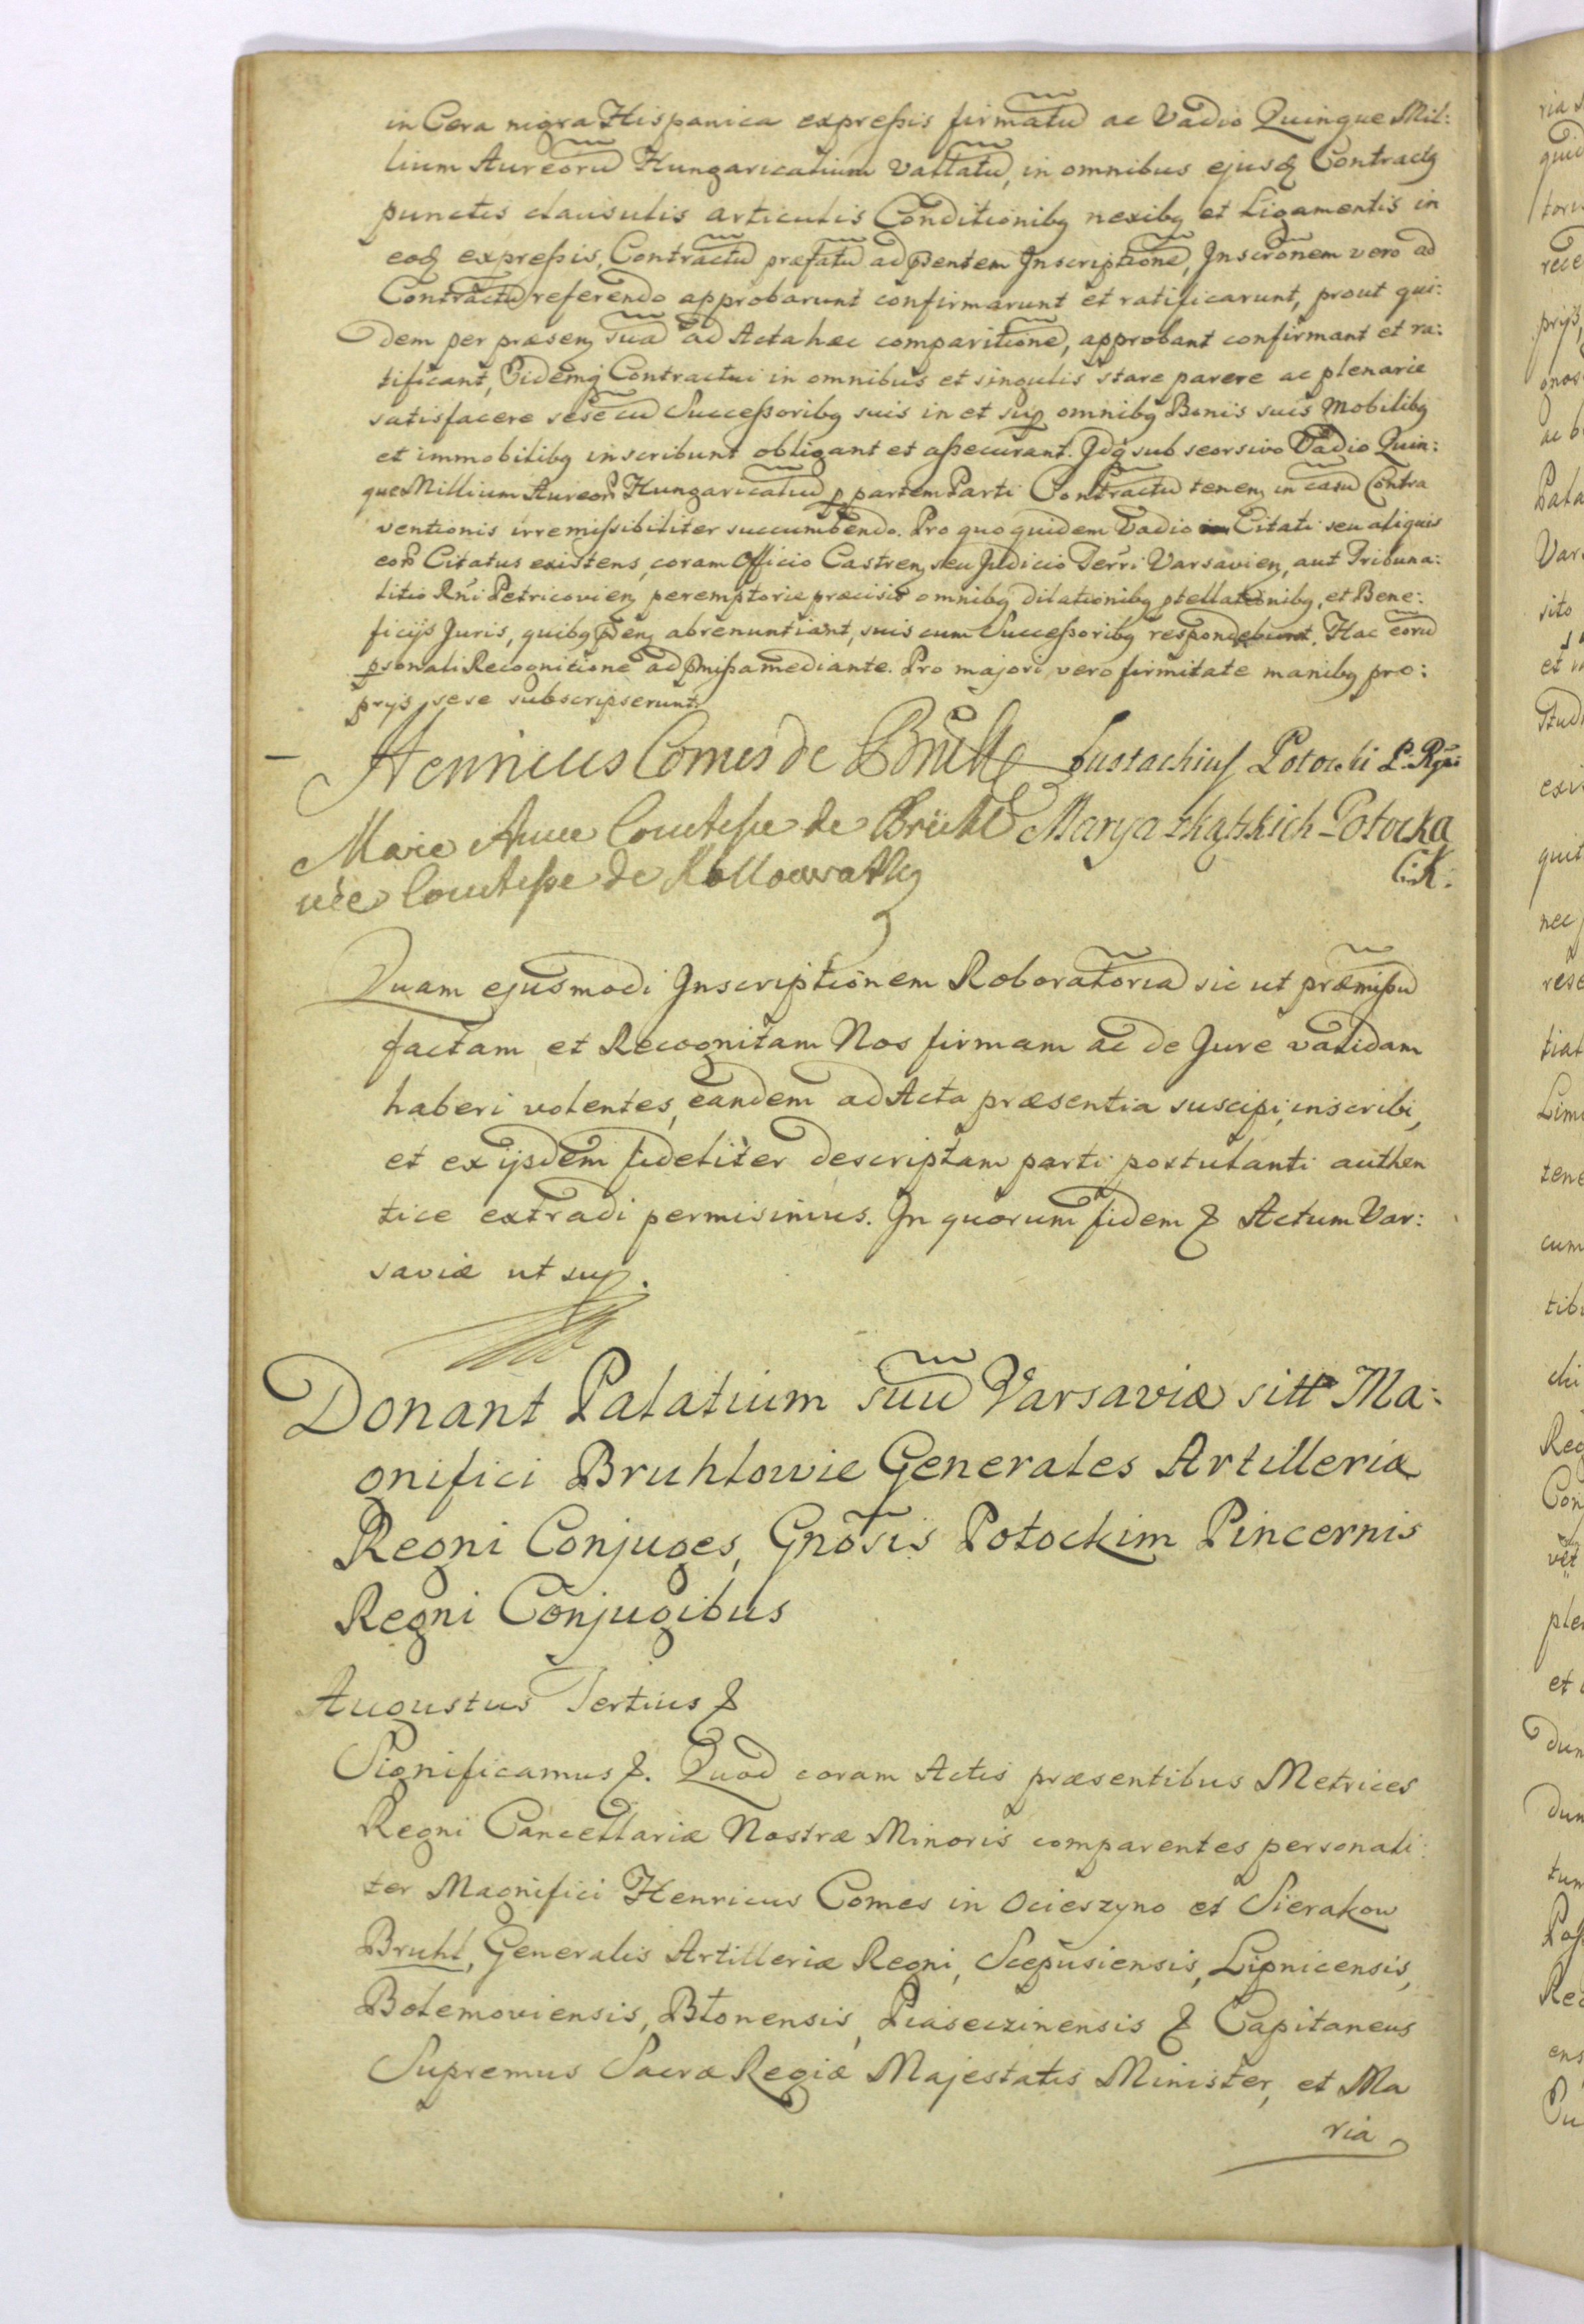 in Cera nigra Hispanica expressis firmatũ ac Vadio Quinque Mil:
lium Aureorũ Hungaricalium vallatũ, in omnibus ejusq Contractq
punctis clausulis articulis Conditionibq nexibq et Ligamentis in
eoq expressis, Contractũ præfatũ ad pñtem Inscriptionẽ, Inscrõnem vero ad
Contractũ referendo approbarunt confirmarunt et ratificarunt, prout qui:
dem per præsenz suã ad Acta hæc comparitionẽ, approbant confirmant et ra:
tificant, Eidemq Contractui in omnibus et singulis stare parere ac plenarie
satisfacere sese cũ Successoribq suis in et sup omnibq Bonis suis Mobilibq
et immobilibq inscribunt obligant et assecurant. Idq sub seorsivo Vadio Quin:
que Millium Aureor Hungaricaliũ p partem Parti Contractũ tenenz in casũ Contra
ventionis irremissibiliter succumbendo. Pro quo quidem Vadio Citati seu aliquis
eor Citatus existens, coram Officio Castrenz seu Judicio Terri Varsavienz, aut Tribuna:
litio Rñi Petricovienz peremptorie præcisis omnibq dilationibq ptellationibq, et Bene:
ficijs Juris, quibq pñenz abrenuntiant, suis cum Successoribq respondebunt. Hac eorũ
psonali Recognitione ad pmissa mediante. Pro majori vero firmitate manibq pro:
prijs sese subscripserunt.
Henricus Comes de Brühl Eustachius Potocki P. Rgni
Marie Anne Comtesse de Brühl Marya z kątskich Potocka
née Comtesse de Kollowrath C:K:
Quam ejusmodi Inscriptionem Roboratoriã sic ut præmissũ
factam et Recognitam Nos firmam ac de Jure validam
haberi volentes, eandem ad Acta præsentia suscipi, inscribi,
et ex ijsdem fideliter descriptam parti postulanti authen
tice extradi permisimus. In quorum fidem & Actum Var:
saviæ ut sup.
Donant Palatium suũ Varsaviæ sitt Ma:
gnifici Bruhlowie Generales Artilleriæ
Regni Conjuges, Gnõsis Potockim Pincernis
Regni Conjugibus
Augustus Tertius &
Significamus &. Quod coram Actis præsentibus Metrices
Regni Cancellariæ Nostræ Minoris comparentes personali:
ter Magnifici Henricus Comes in Ocieszyno et Sierakow
Bruhl, Generalis Artilleriæ Regni, Scepusiensis, Lipnicensis,
Bolemoviensis, Błonensis, Piaseczinensis & Capitaneus
Supremus Sacræ Regiæ Majestatis Minister, et Ma
ria